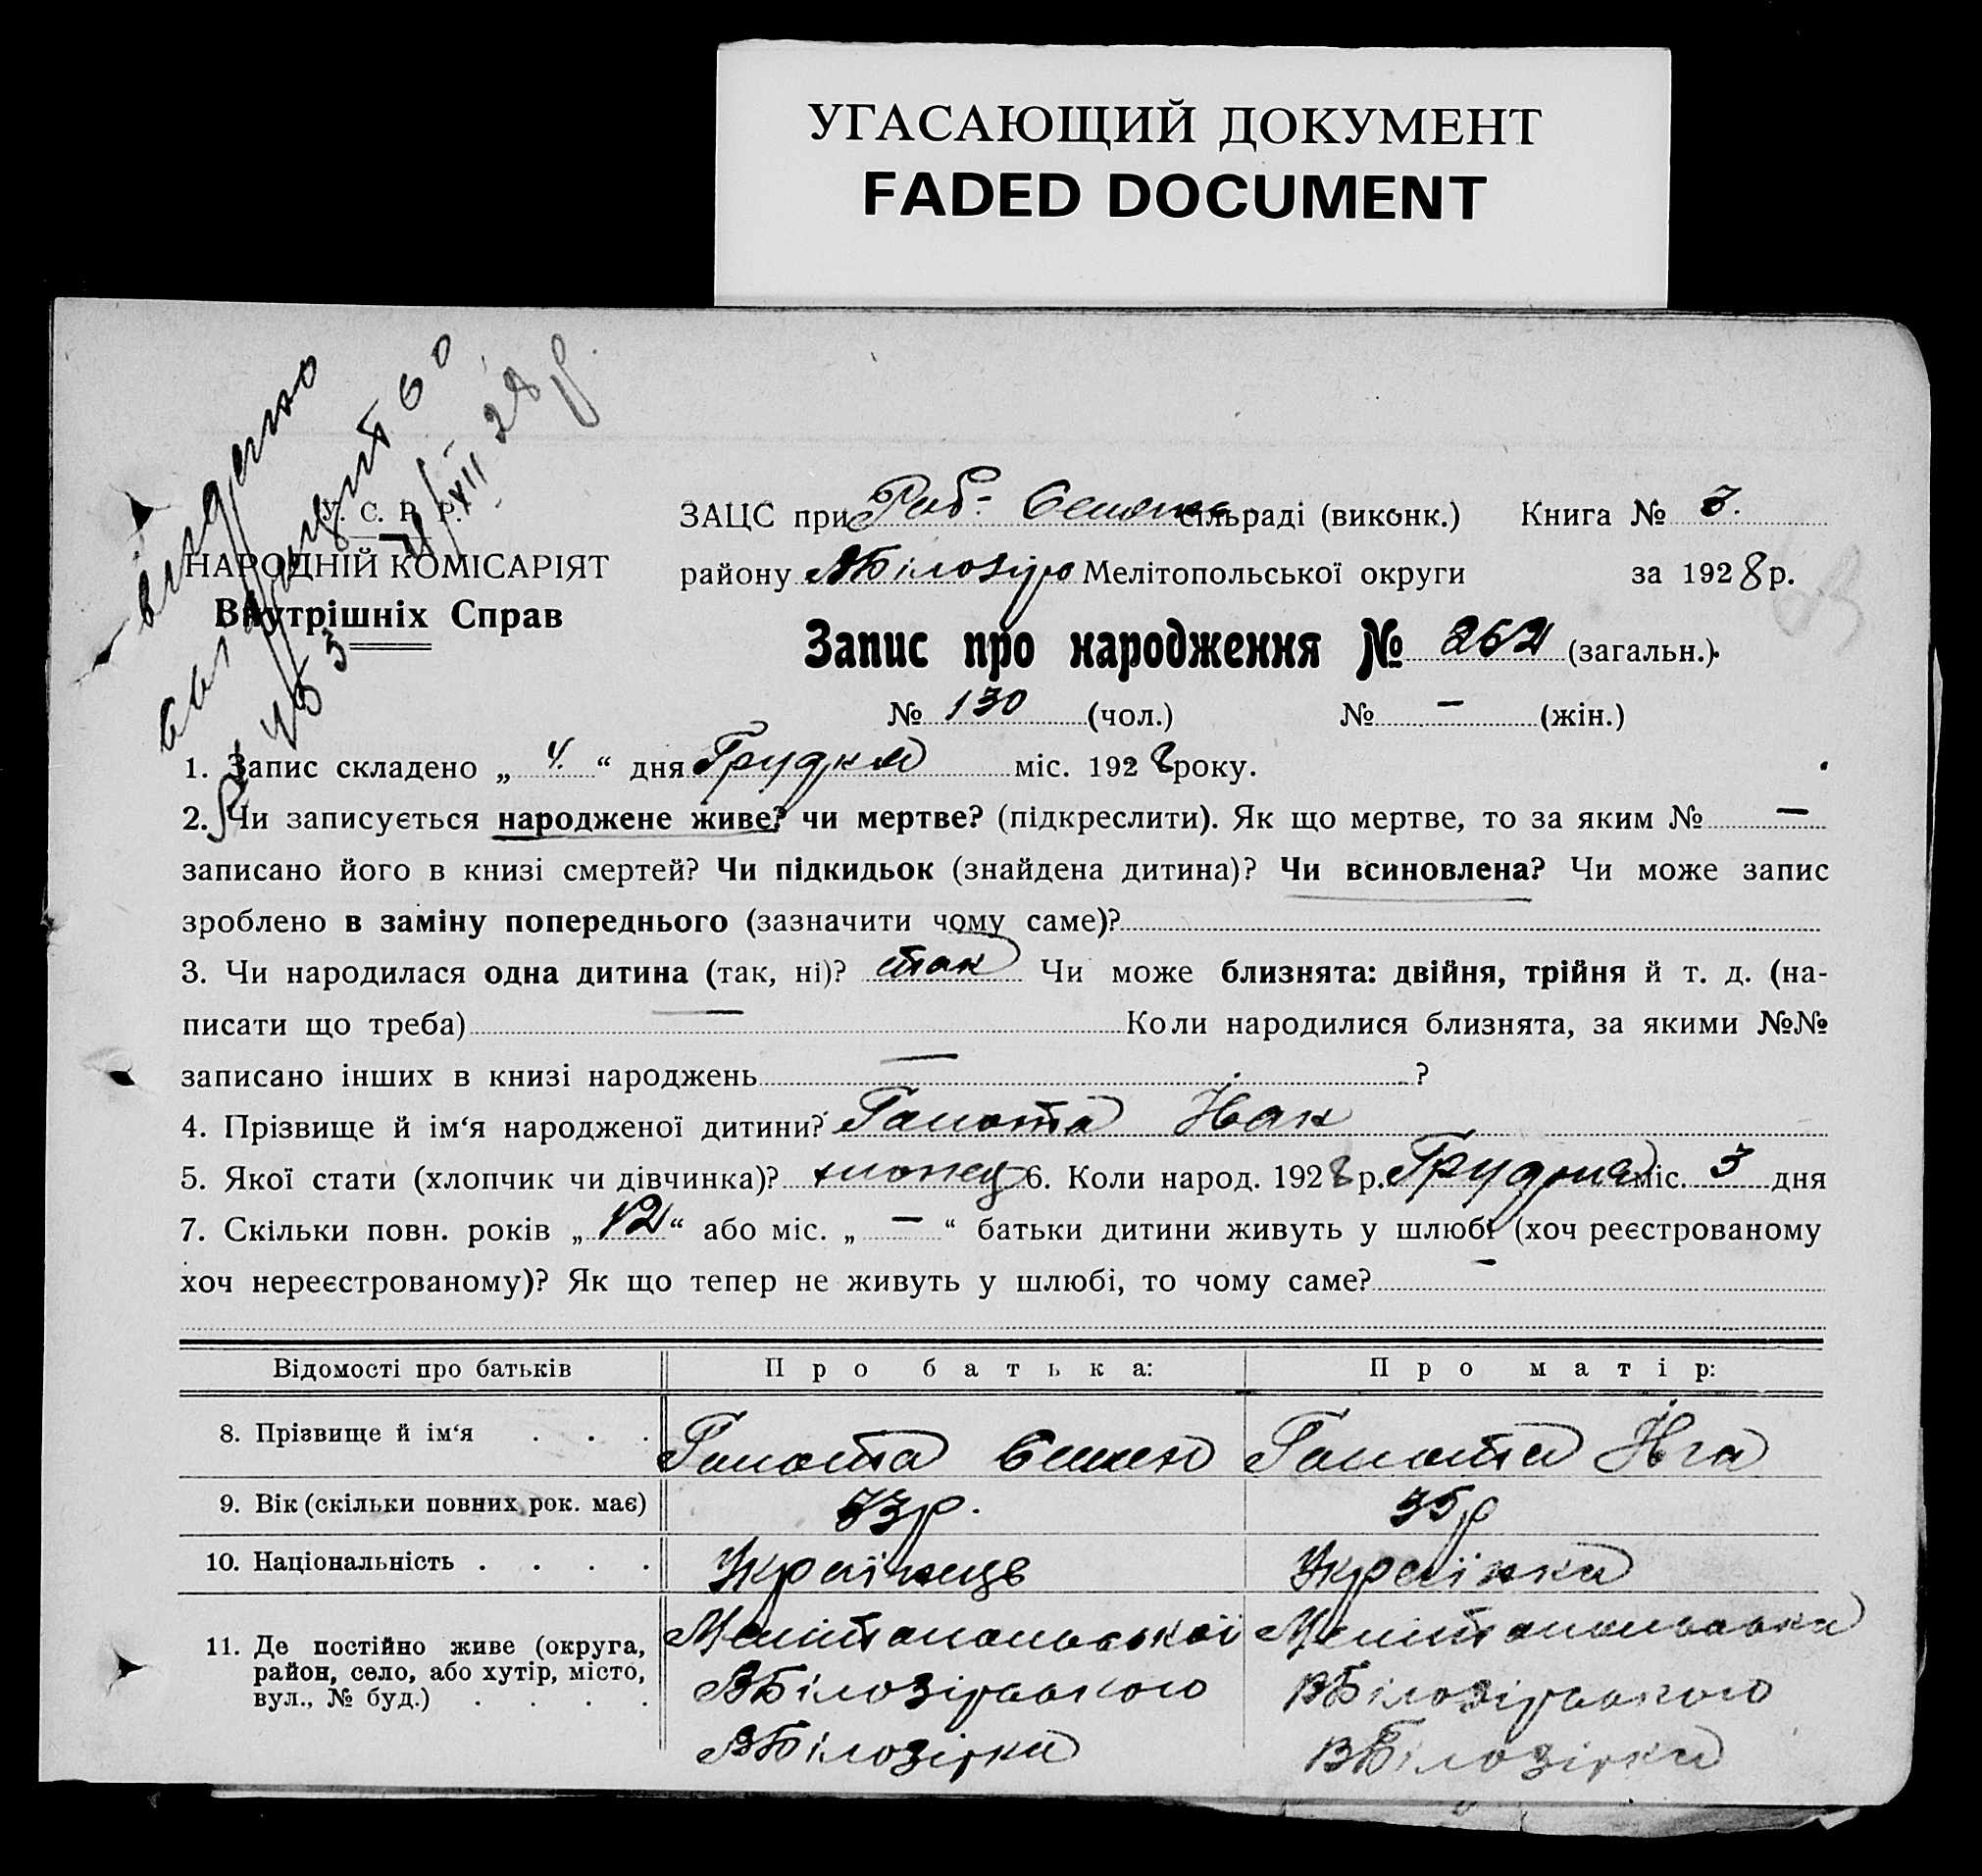 УГАСАЮЩИЙ ДОКУМЕНТ
FADED DOCUMENT
видено
У. С. Р. Р.
НАРОДНІЙ КОМІСАРІЯТ
Внутрішніх Справ
ЗАЦС при Роб- Селянс сільраді (виконк.) Книга № 3.
району ВБілозір Мелітопольської округи за 1928 р.
Запис про народження № 262 (загальн.).
№ 130 (чол.) № — (жін.)
1. Запис складено „ 4. “ дня Грудня міс. 1928 року.
2. Чи записується народжене живе? чи мертве? (підкреслити). Як що мертве, то за яким № —
записано його в книзі смертей? Чи підкидьок (знайдена дитина)? Чи всиновлена? Чи може запис
зроблено в заміну попереднього (зазначити чому саме)?
3. Чи народилася одна дитина (так, ні)? так Чи може близнята: двійня, трійня й т. д. (на-
писати що треба) — Коли народилися близнята, за якими №№
записано інших в книзі народжень — ?
4. Прізвище й ім‘я народженої дитини? Гамота Іван
5. Якої стати (хлопчик чи дівчинка)? хлопец 6. Коли народ. 1928 р. Грудня міс. 3 дня
7. Скільки повн. років „ 12 “ або міс. „ — “ батьки дитини живуть у шлюбі (хоч реєстрованому
хоч нереєстрованому)? Як що тепер не живуть у шлюбі, то чому саме? —
Відомості про батьків Про батька: Про матір:
8. Прізвище й ім‘я . . . Гамота Семен Гамота Яга
9. Вік (скільки повних рок. має) 33р. 35р
10. Національність . . . . Українець Українка
11. Де постійно живе (округа, район, село, або хутір, місто, вул., № буд.) . . . .
Мелітопольської Мелітопольська
ВБілозірського ВБілозірського
ВБілозірка ВБілозірка